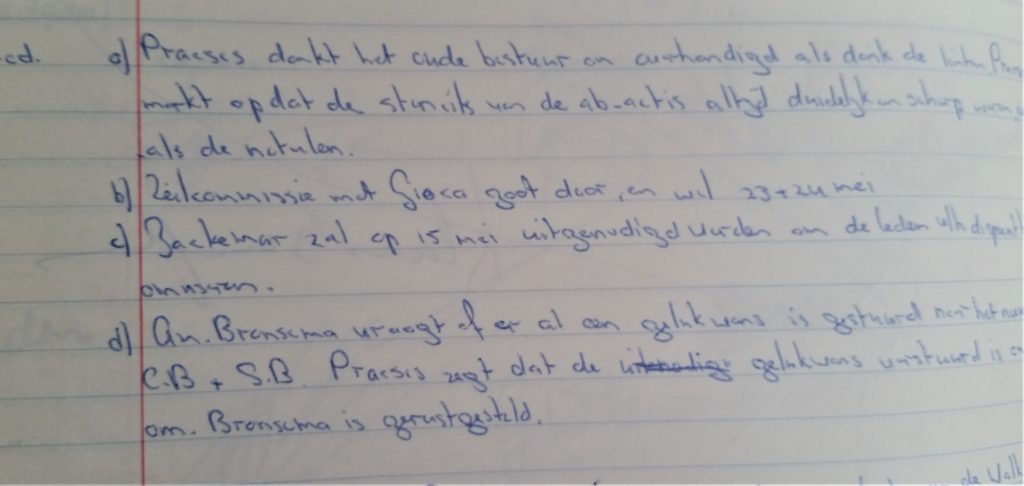 ed. a) Praeses dankt het oude bestuur en overhandigd als dank de linten. Praeses
merkt op dat de stencils van de ab-actis altijd duidelijk en scherp waren,
als de notulen.
b) Zeilcommissie met Gioca gaat door, en wel 23 + 24 mei
c) Backemar zal op 15 mei uitgenodigd worden om de leden v/h dispuut
d) Am. Bronsema vraagt of er al een gelukwens is gestuurd naar het
C.B + S.B. Praeses zegt dat de gelukwens verstuurd is
om. Bronsema is gerustgesteld.
de Wall